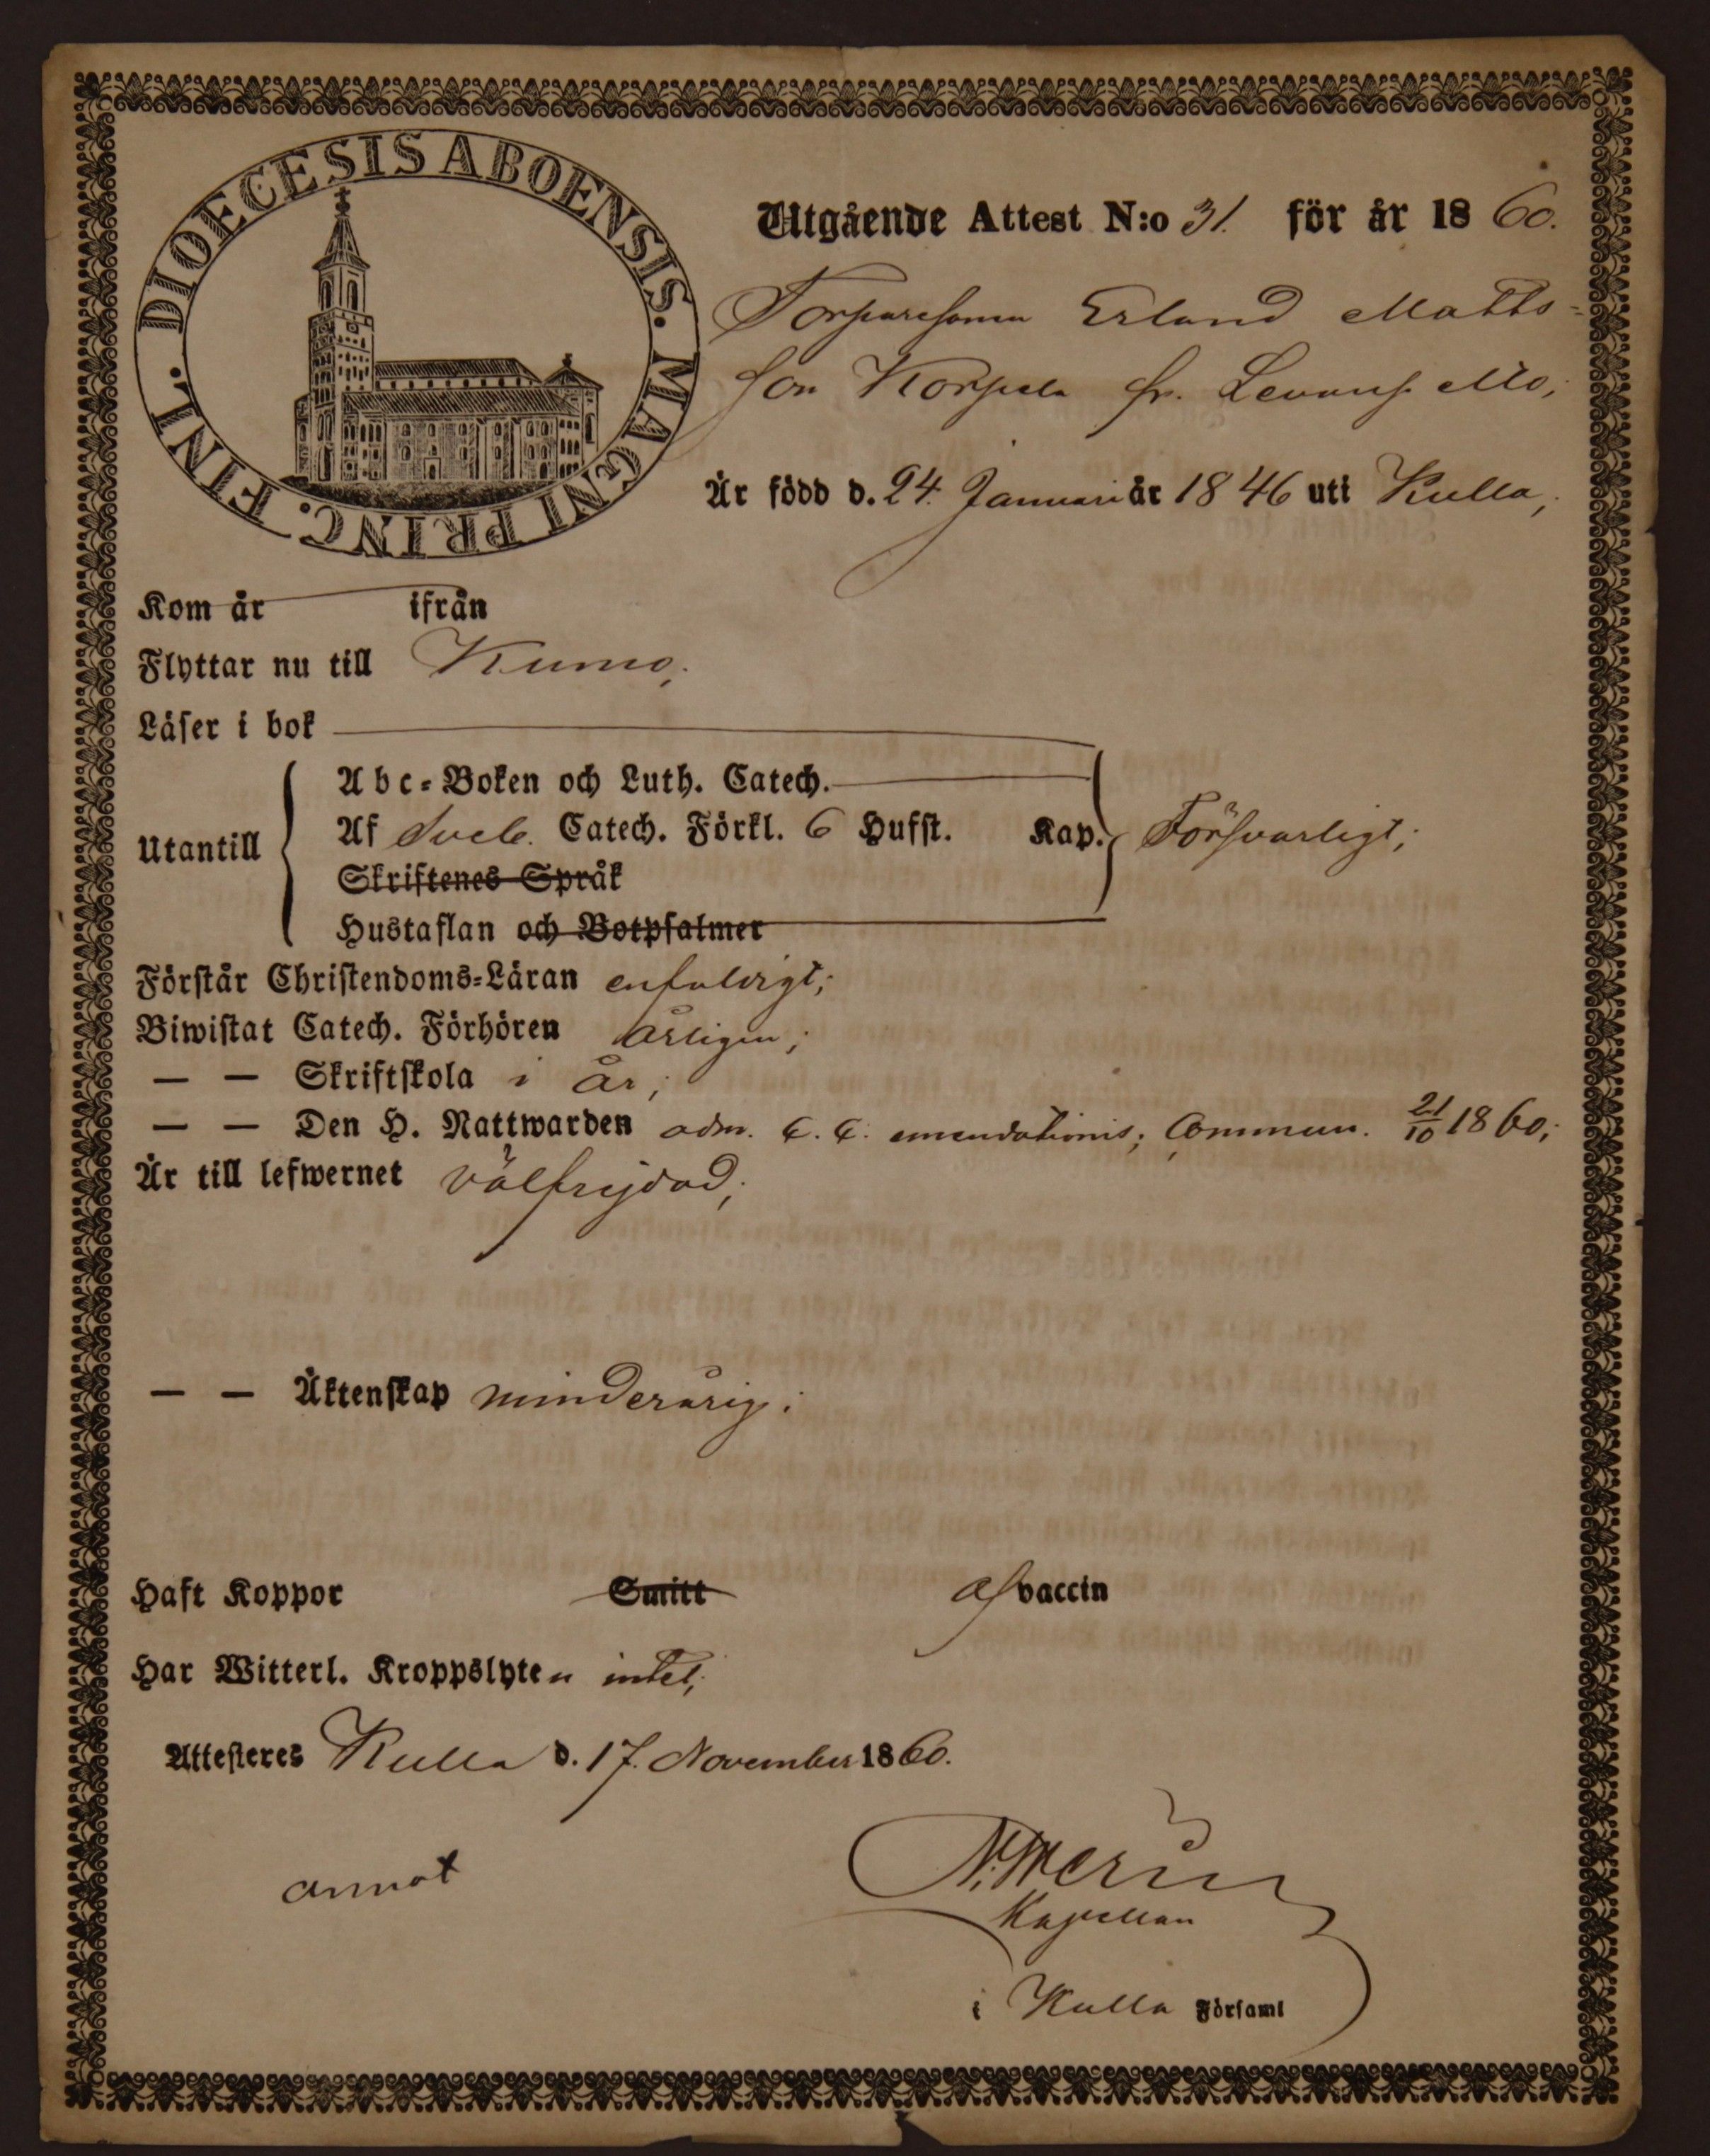 DIOECESIS ABOENSIS. MAGNI PRINC. FINL.
Utgående Attest N:o 31. för år 1860.
Torparesonen Erland Matts-
son Korpela fr. Levanp. Mo;
Är född d. 24. Januari år 1846 uti Kulla;
Kom år ifrån
Flyttar nu till Kumo;
Läser i bok
Utantill
Abc-Boken och Luth. Catech.
Af Sveb. Catech. Förkl. 6 Hufst. Kap. Försvarligt;
Skriftenes Språk
Hustaflan och Botpsalmer
Förstår Christendoms-Läran enfaldigt;
Biwistat Catech. Förhören årligen;
— — Skriftskola i år;
— — Den H. Nattwarden adm. C. C. emendationis; Commun. 21/10 1860;
Är till lefwernet välfrejdad;
— — Äktenskap minderårig;
Haft Koppor Smitt af vaccin
Har Witterl. Kroppslyten intet;
Attesteres Kulla d. 17. November 1860.
annot
Kapellan
i Kulla Församl